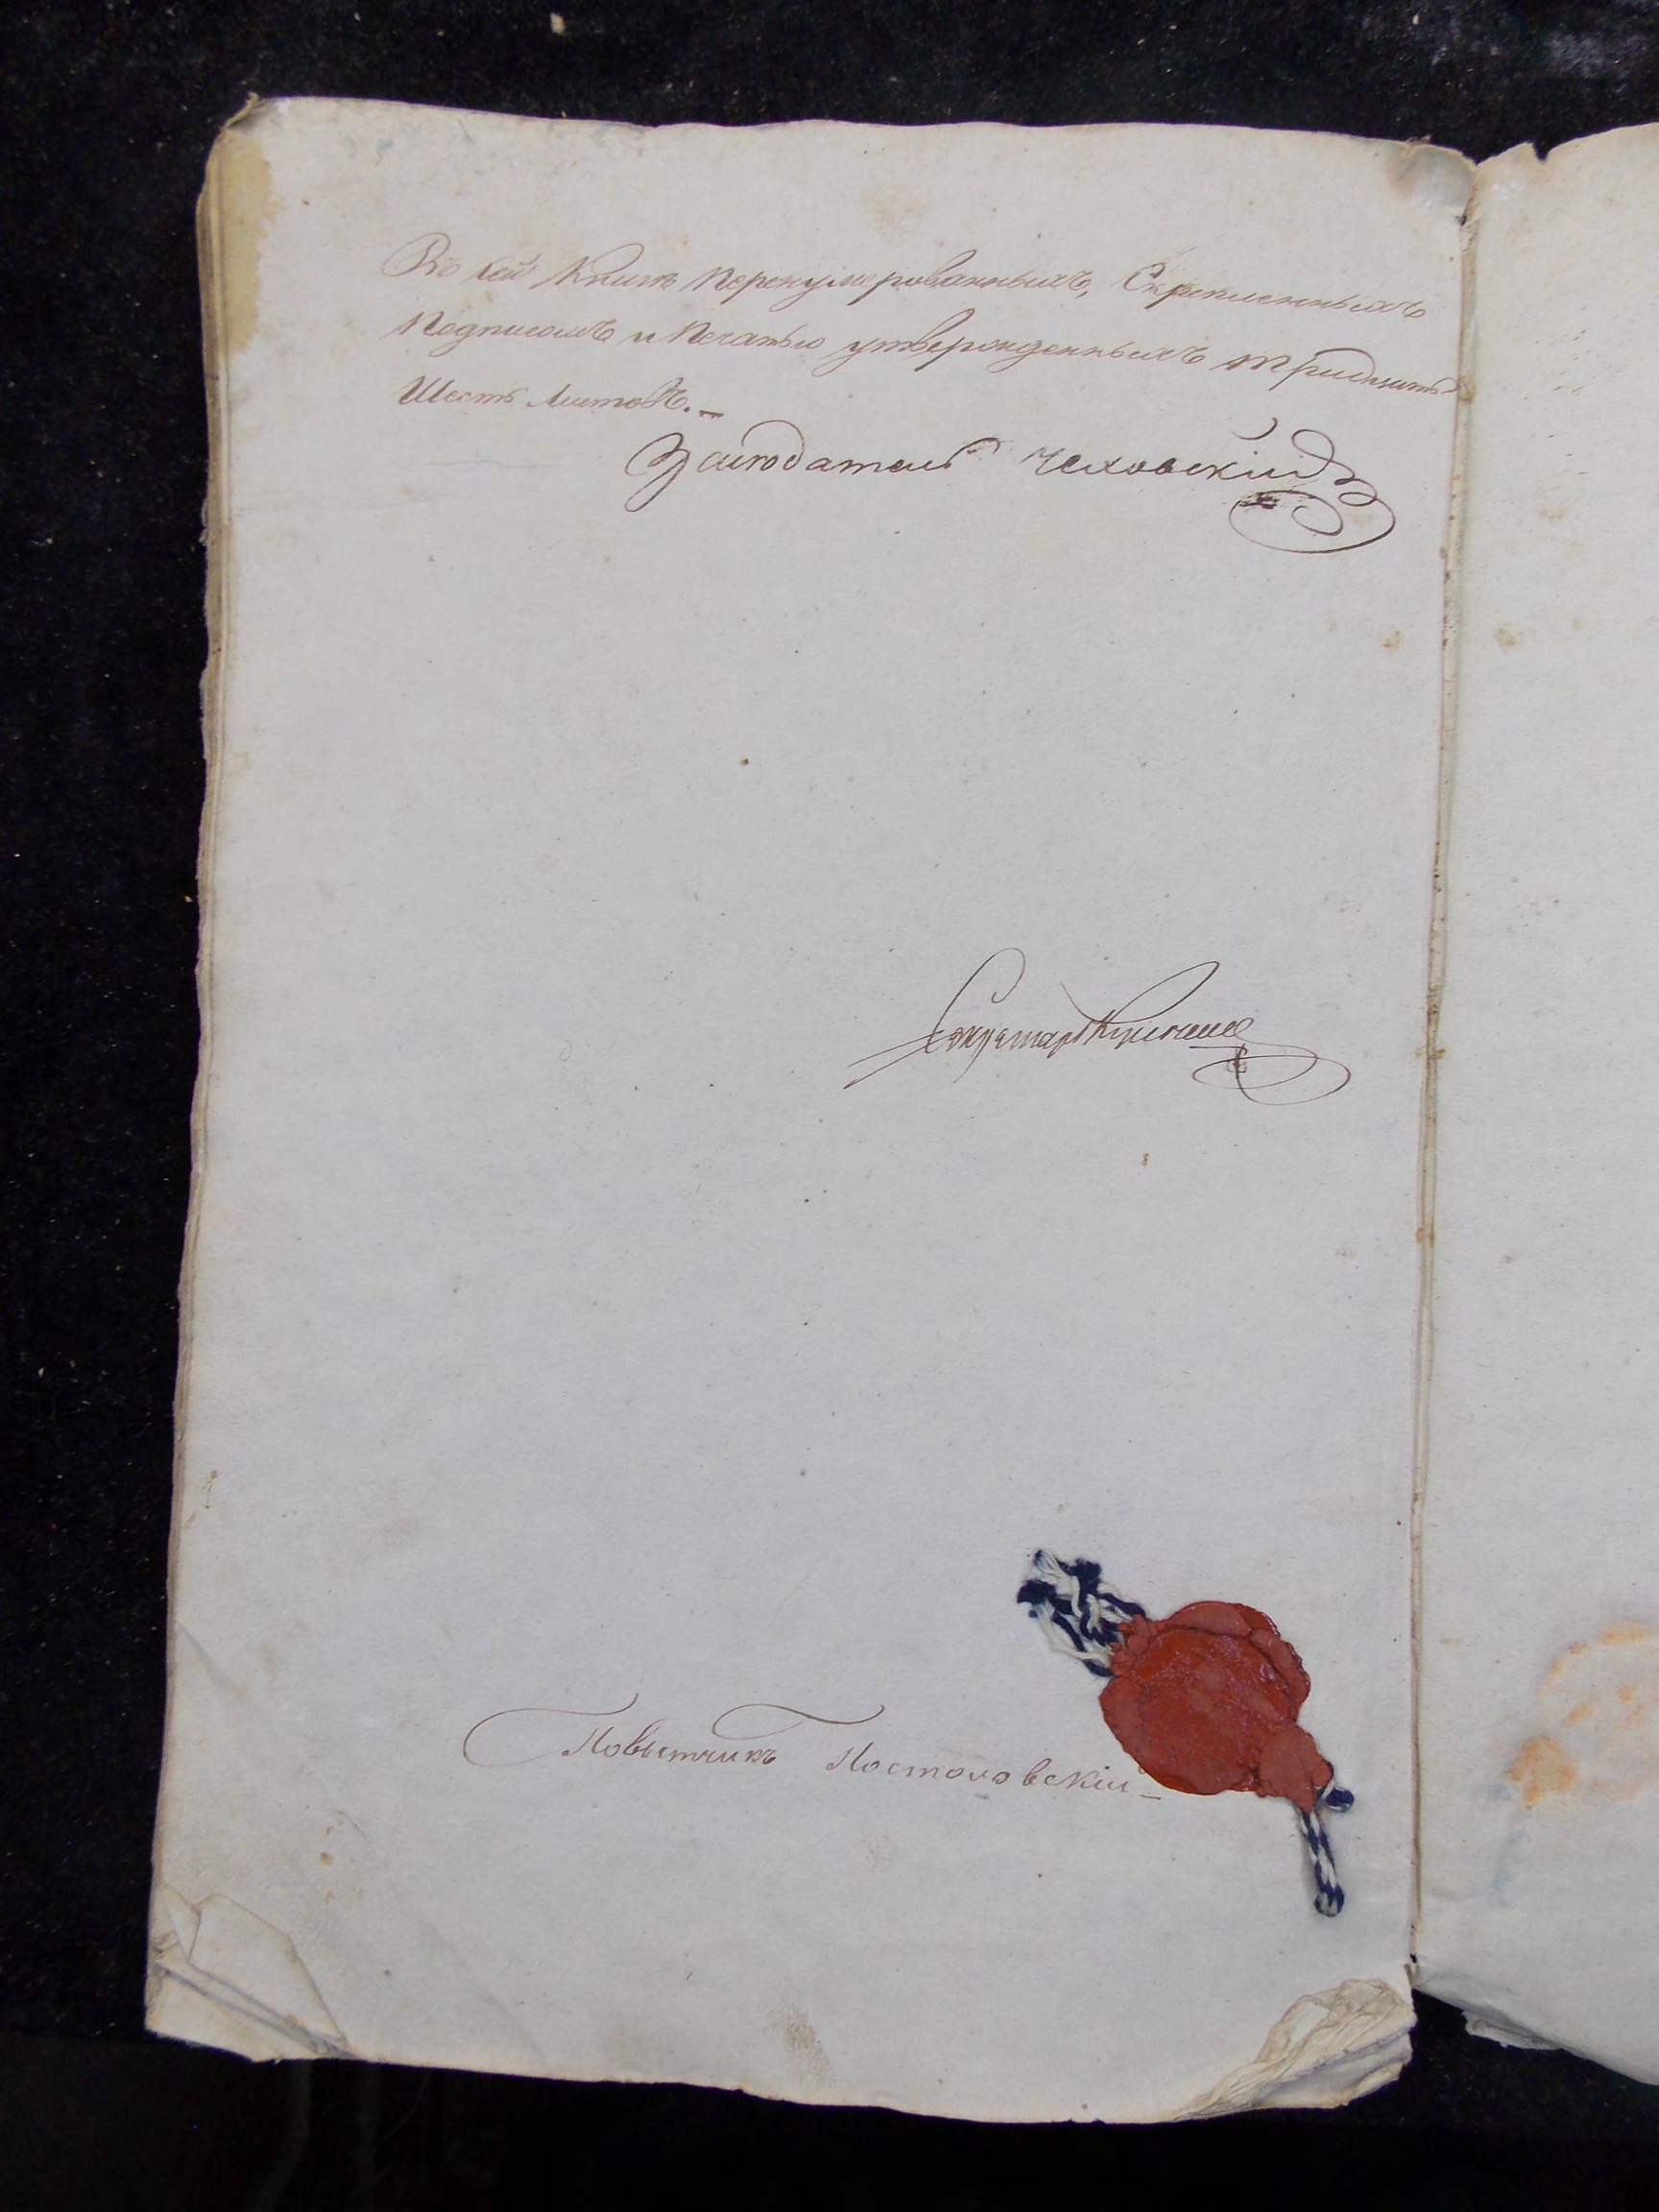 Въ сей Книгѣ перенумерованныхъ, Скрепленныхъ
Подписомъ и Печатью утвержденныхъ тридцать
Шесть листовъ.–
Заседатель Чеховскій
Секретарь
Повытчикъ Постоловскій